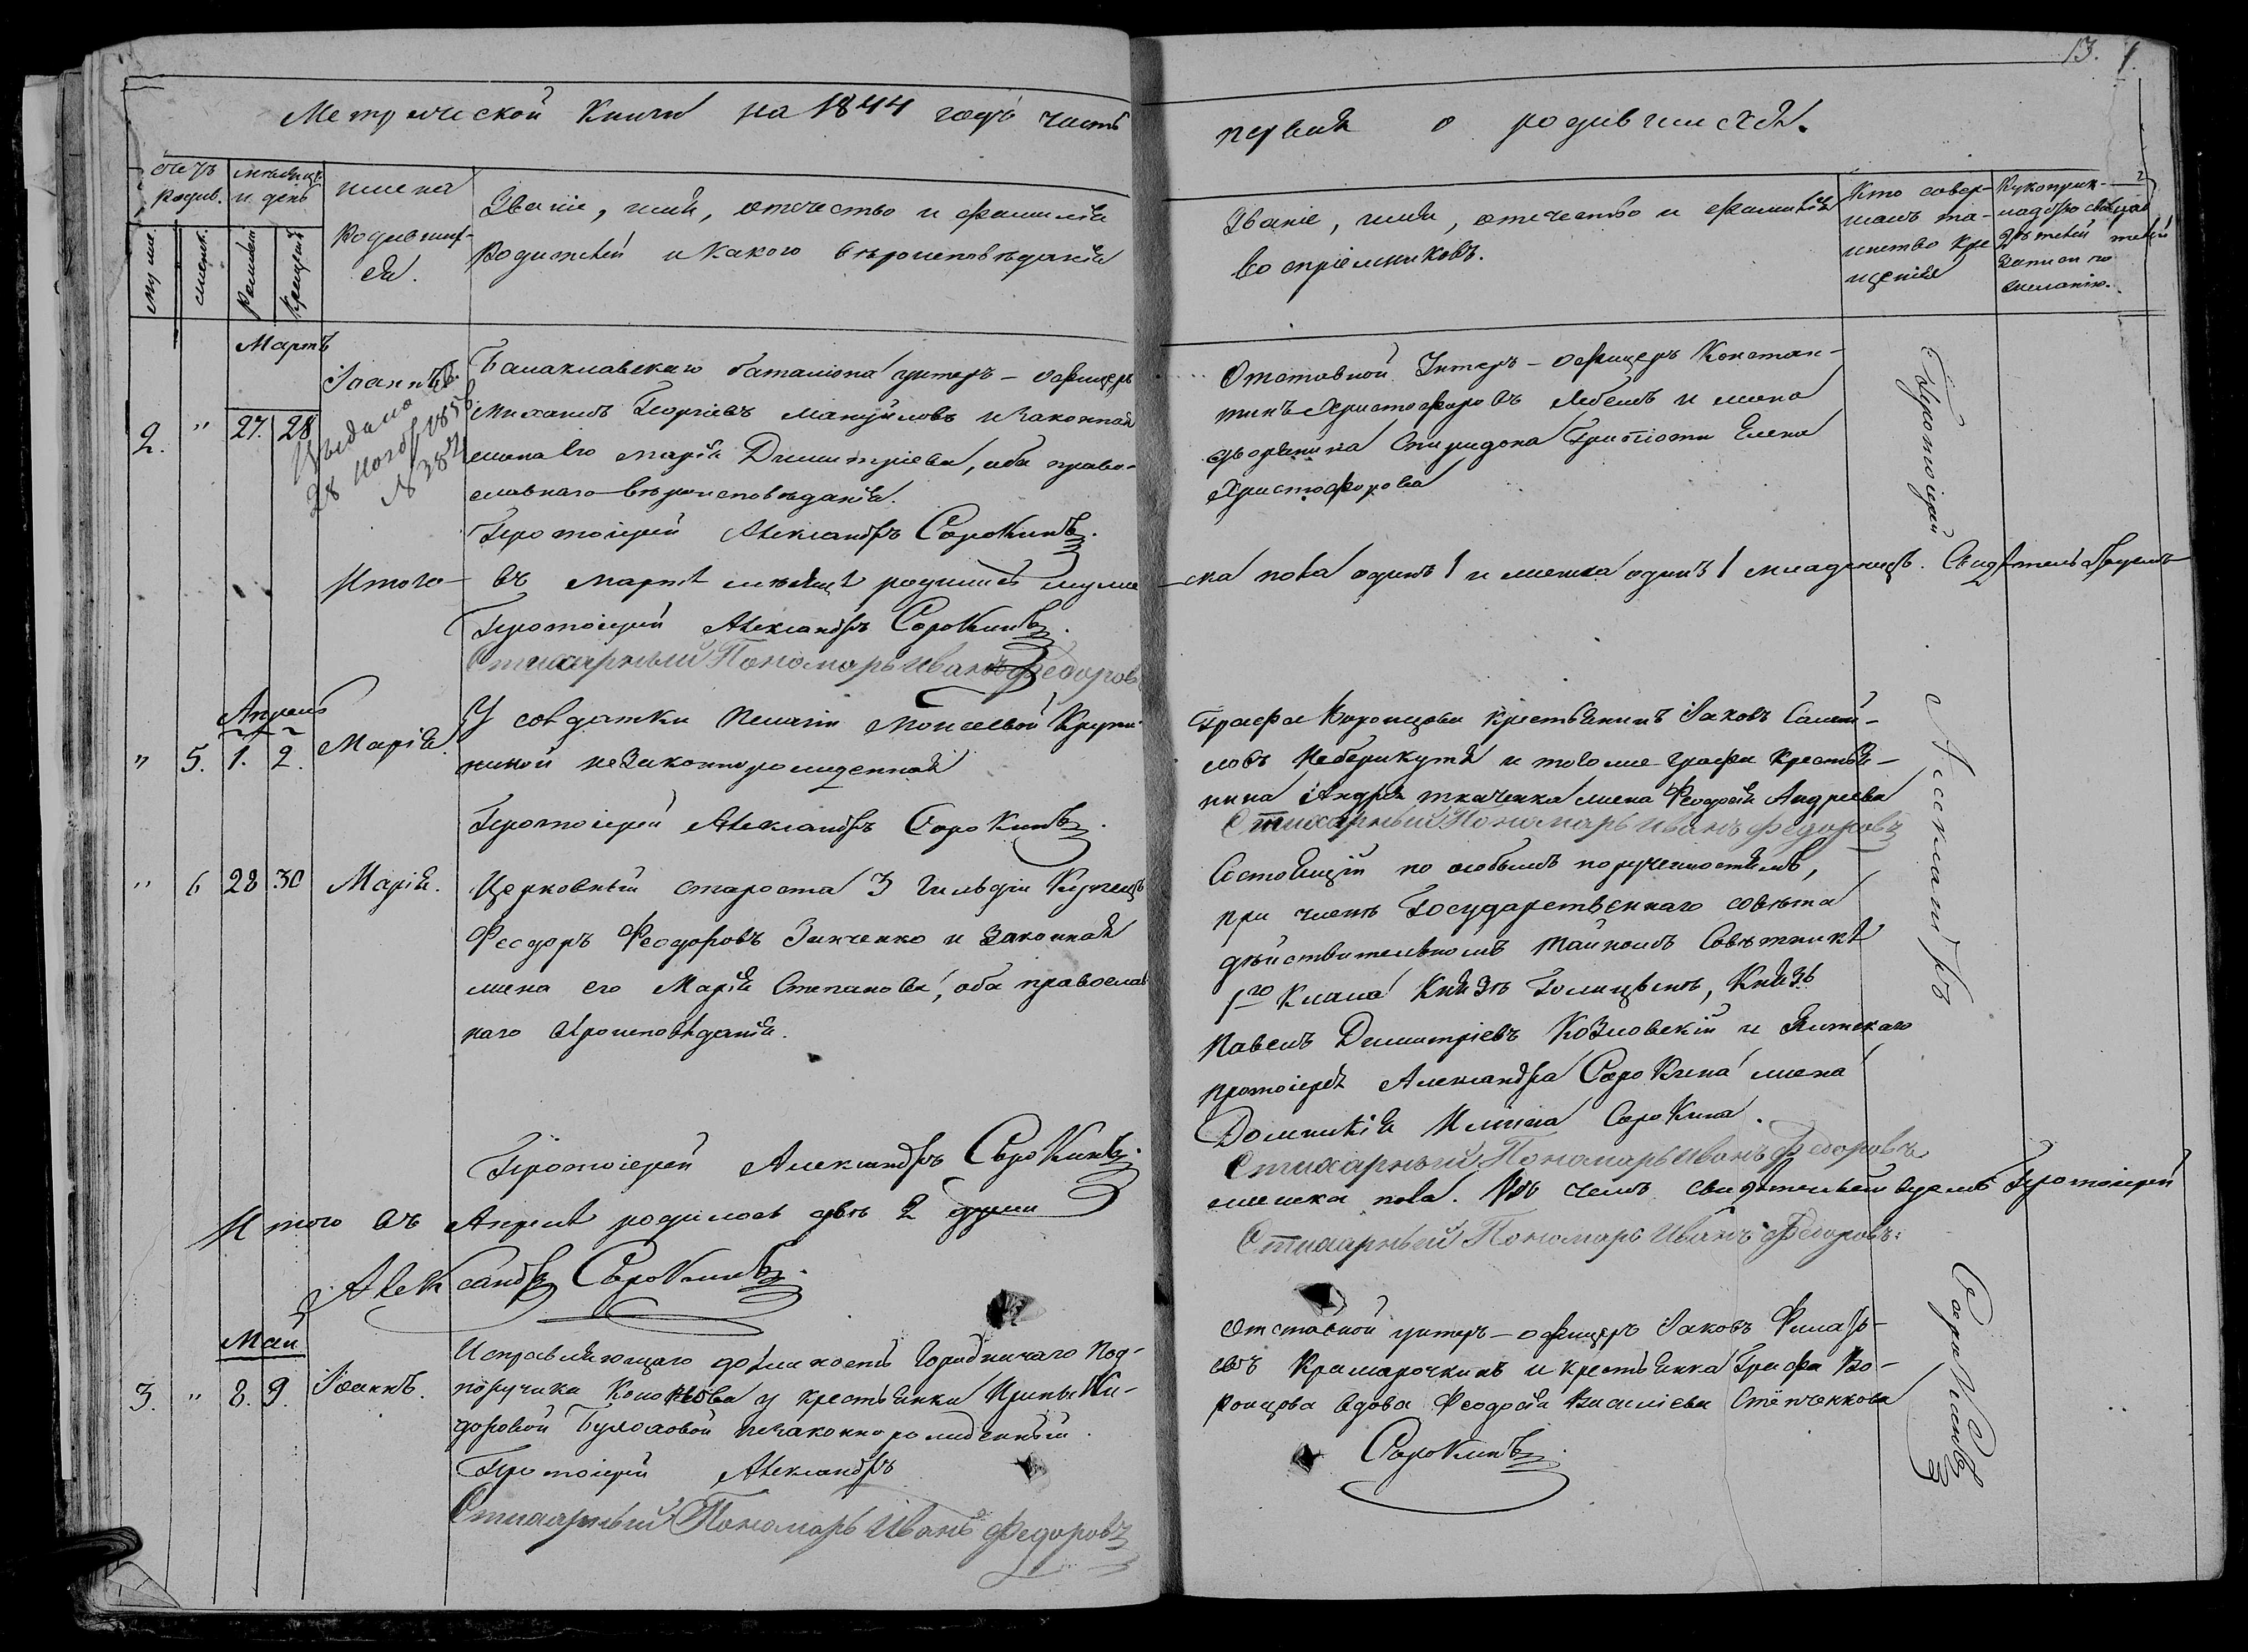 13.
Метрической Книги на 1844 годъ часть первая о родившихся.
Счетъ родив.
мужес.
женск.
мѣсяцъ и день
Рожденія
Крещенія
имена родившихся.
Званіе, имя, отчество и фамилія
родителей и какого вѣроисповѣданія
Званіе, имя, отчество и фамилія
воспріемниковъ.
Кто совер-
шалъ та-
инство кре
щенія
Рукоприк-
ладство свидѣ
записи по
желанію.
Мартъ
2. " 27. 28
Іоаннъ.
Выдано
28 Нояб 1856
Балаклавскаго баталіона унтеръ-офицеръ
Михаилъ Георгіевъ Мануйловъ и законная
жена его Марія Димитріева, оба право-
славнаго вѣроисповѣданія.
Протоіерей Александръ Сорокинъ.
Отставной Унтеръ-офицеръ Констан-
тинъ Христофоровъ и жена
дворянина Спиридона Елена
Христофорова
Итого въ Мартѣ мѣсяцѣ родилось муже
ска пола одинъ 1 и женска одинъ 1 младенецъ. Свидѣтельствуемъ
Протоіерей Александръ Сорокинъ.
Стихарный Пономарь Иванъ Федоровъ
Апрель
" 5. 1. 2.
Марія.
У солдатки Пелагіи Моисеевой
незаконнорожденная
Протоіерей Александръ Сорокинъ.
Графа Воронцова крестьянинъ Іаковъ
ловъ Неберикутя и тогоже графа крестья-
нина Андрея Ткаченка жена Феодосія Андреева
Стихарный Пономарь Иванъ Федоровъ
" 6 28 30
Марія.
Церковный староста 3 гильдіи Купецъ
Феодоръ Феодоровъ Зинченко и законная
жена его Марія Степанова, оба православ
наго вѣроисповѣданія.
Протоіерей Александръ Сорокинъ.
Состоящій по особымъ порученностямъ,
при членѣ Государственнаго совѣта
дѣйствительномъ тайномъ Совѣтникѣ
1го класа Князѣ Голицынѣ, Князь
Павелъ Димитріевъ Козловскій и Ялтскаго
протоіерея Александра Сорокина жена
Домникія Ильина Сорокина.
Стихарный Пономарь Иванъ Федоровъ
Итого въ Апрелѣ родилось двѣ 2 души
женска пола. Въ чемъ свидѣтельствуемъ Протоіерей
Александръ Сорокинъ.
Стихарный Пономарь Иванъ Федоровъ.
Май
3. " 8. 9.
Іоаннъ.
Исправляющаго должность Городничаго Под-
поручика у крестьянки Ирины
доровой незаконнорожденный.
Протоіерей Александръ
Стихарный Пономарь Иванъ Федоровъ
Отставной унтеръ-офицеръ Іаковъ
евъ Крамарочкинъ и крестьянка Графа Во-
ронцова вдова Феодосія Василіева Стёпченкова
Сорокинъ.
Протоіерей
Александръ
Сорокинъ